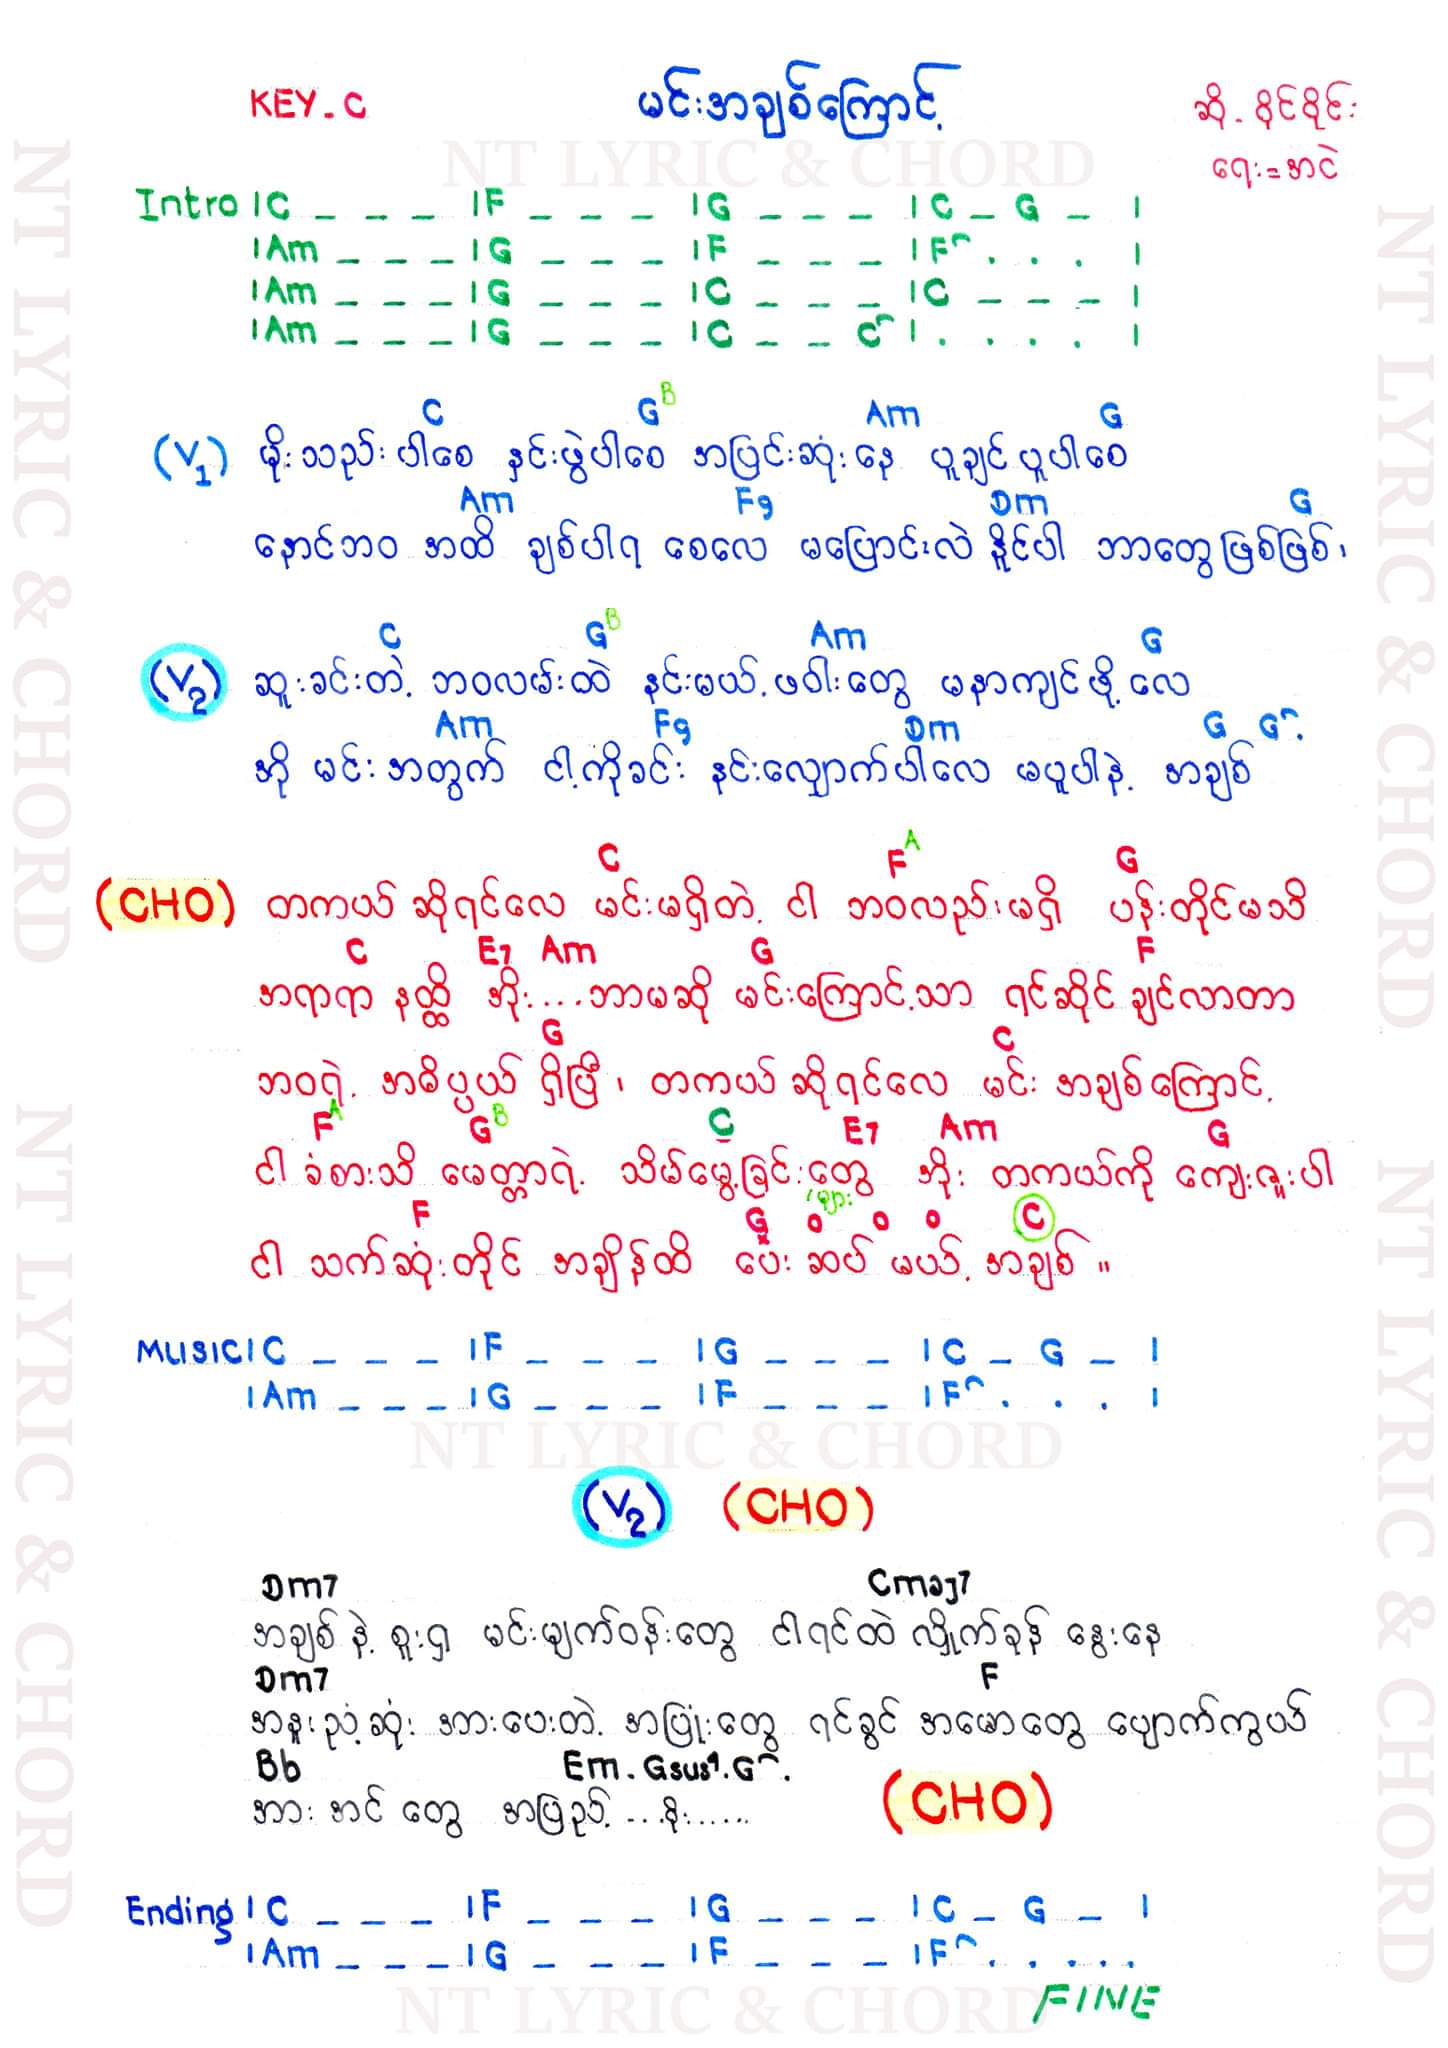 KEY - C
မင်းအချစ်ကြောင့်
ဆို - ဝိုင်ဝိုင်း
ရေး = အငဲ
NT LYRIC & CHORD
Intro | C _ _ _ | F _ _ _ | G _ _ _ | C _ G _ |
| Am _ _ _ | G _ _ _ | F _ _ _ | F^ . . . |
| Am _ _ _ | G _ _ _ | C _ _ _ | C _ _ _ |
| Am _ _ _ | G _ _ _ | C _ _ C^ | . . . . |
C G B Am G
(V1) မိုးသည်းပါစေ နှင်းဖွဲပါစေ အပြင်းဆုံးနေ ပူချင်ပူပါစေ
Am F9 Dm G
နောင်ဘဝ အထိ ချစ်ပါရ စေလေ မပြောင်းလဲ နိူင်ပါ ဘာတွေဖြစ်ဖြစ်၊
C G B Am G
(V2) ဆူးခင်းတဲ့ ဘဝလမ်းထဲ နင်းမယ့်ဖဝါးတွေ မနာကျင်ဖို့လေ
Am F9 Dm G G^.
အို မင်းအတွက် ငါ့ကိုခင်း နင်းလျှောက်ပါလေ မပူပါနဲ့ အချစ်
C F A G
(CHO) တကယ် ဆိုရင်လေ မင်းမရှိတဲ့ ငါ ဘဝလည်းမရှိ ပန်းတိုင်မသိ
C E7 Am G F
အရာရာ နတ္ထိ အိုး....ဘာမဆို မင်းကြောင့်သာ ရင်ဆိုင်ချင်လာတာ
G C
ဘဝရဲ့ အဓိပ္ပယ် ရှိပြီ၊ တကယ်ဆိုရင်လေ မင်း အချစ်ကြောင့်
F A G B C E7 Am G
ငါ ခံစားသိ မေတ္တာရဲ့ သိမ်မွေ့ခြင်းတွေ အိုး တကယ်ကို ကျေးဇူးပါ
များ
F G o o o C
ငါ သက်ဆုံးတိုင် အချိန်ထိ ပေးဆပ် မယ့် အချစ် ။
MUSIC | C _ _ _ | F _ _ _ | G _ _ _ | C _ G _ |
| Am _ _ _ | G _ _ _ | F _ _ _ | F^ . . . |
NT LYRIC & CHORD
(V2) (CHO)
Dm7 Cmaj7
အချစ် နဲ့ စူးရှ မင်းမျက်ဝန်းတွေ ငါရင်ထဲ လှိုက်ခုန် နွေးနေ
Dm7 F
အနူးညံ့ဆုံး အားပေးတဲ့ အပြုံးတွေ ရင်ခွင် အမောတွေ ပျောက်ကွယ်
Bb Em . Gsus4 . G^ .
အား အင် တွေ အပြည့် ...စိုး.....
(CHO)
Ending | C _ _ _ | F _ _ _ | G _ _ _ | C _ G _ |
| Am _ _ _ | G _ _ _ | F _ _ _ | F^ . . . . .
FINE
NT LYRIC & CHORD
NT LYRIC & CHORD
NT LYRIC & CHORD
NT LYRIC & CHORD
NT LYRIC & CHORD